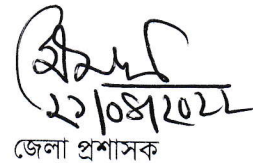 ২১/০৪/২০২২
জেলা প্রশাসক